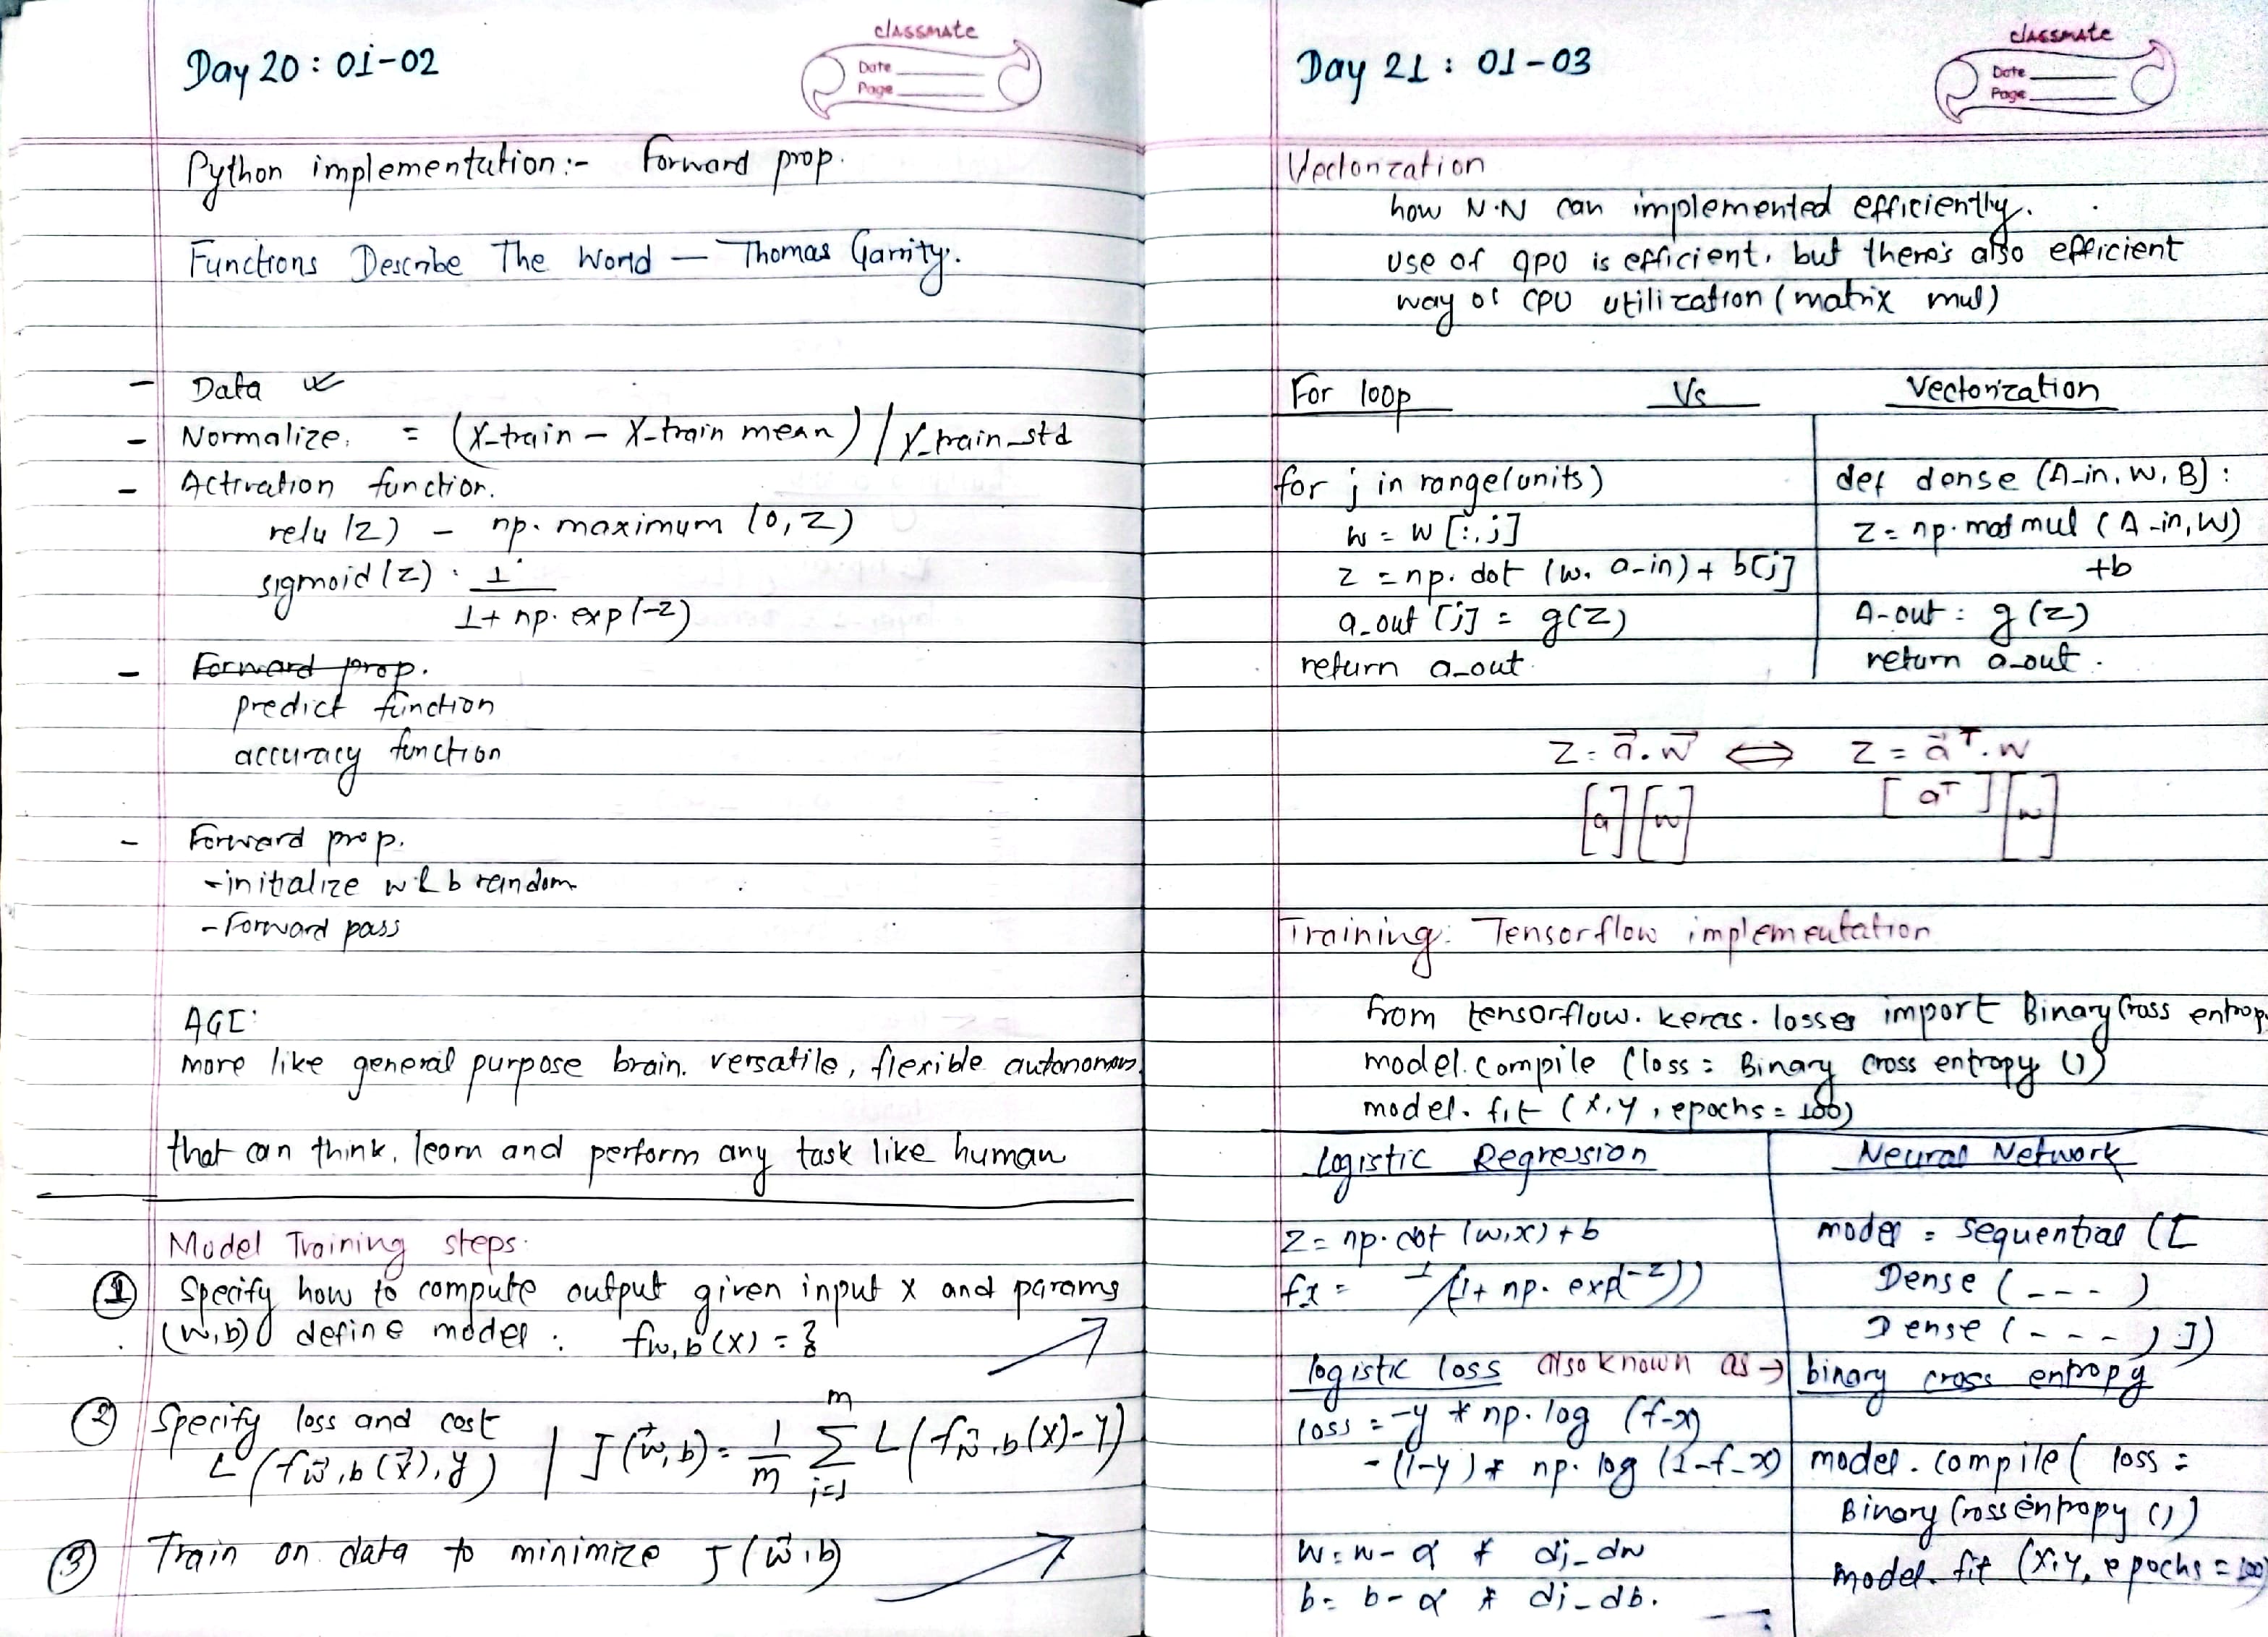 classmate
Date
Page
Day 20 : 01-02
Python implementation :- Forward prop.
Functions Describe The World — Thomas Garrity.
- Data
- Normalize. = (X-train - X-train mean) / X_train_std
- Activation function.
relu (z) - np. maximum (0, z)
sigmoid (z) . 1
1 + np. exp (-z)
- Forward prop.
predict function
accuracy function
- Forward prop.
- initialize w & b random
- Forward pass
AGI:
more like general purpose brain. versatile, flexible autonomous
that can think, learn and perform any task like human
Model Training steps.
① Specify how to compute output given input X and params
(w,b) define model : fw,b (x) = }
② Specify loss and cost
L (f w⃗,b (x⃗), y) | J (w⃗,b) = 1/m m∑i=1 L (f w⃗,b (x) - Y)
③ Train on data to minimize J (w⃗,b)
classmate
Date
Page
Day 21 : 01-03
Vectorization
how N.N can implemented efficiently.
use of GPU is efficient, but there's also efficient
way of CPU utilization (matrix mul)
For loop Vs Vectorization
for j in range(units)
w = w [:,j]
z = np. dot (w, a-in) + b[j]
a_out [j] = g(z)
return a_out
def dense (A-in, W, B) :
z = np. matmul (A-in, W)
+b
A-out = g (z)
return a-out .
Z = a⃗ . w⃗ ⟺ Z = a⃗ᵀ . w
[a] [w] [aᵀ] [w]
Training: Tensorflow implementation
from tensorflow. keras. losses import Binary Cross entrop
model. compile (loss = Binary cross entropy ())
model. fit (x,y, epochs = 100)
Logistic Regression
z = np. dot (w,x) + b
fx = 1/(1 + np. exp(-z))
logistic loss also known as → binary cross entropy
loss = -y * np. log (f-x)
- (1-y) * np. log (1-f-x)
w = w - α * dj_dw
b = b - α * dj_db.
Neural Network
model = sequential ([
Dense (---)
Dense (---) ])
model. compile ( loss =
Binary Cross entropy ())
model. fit (x,y, epochs = 100